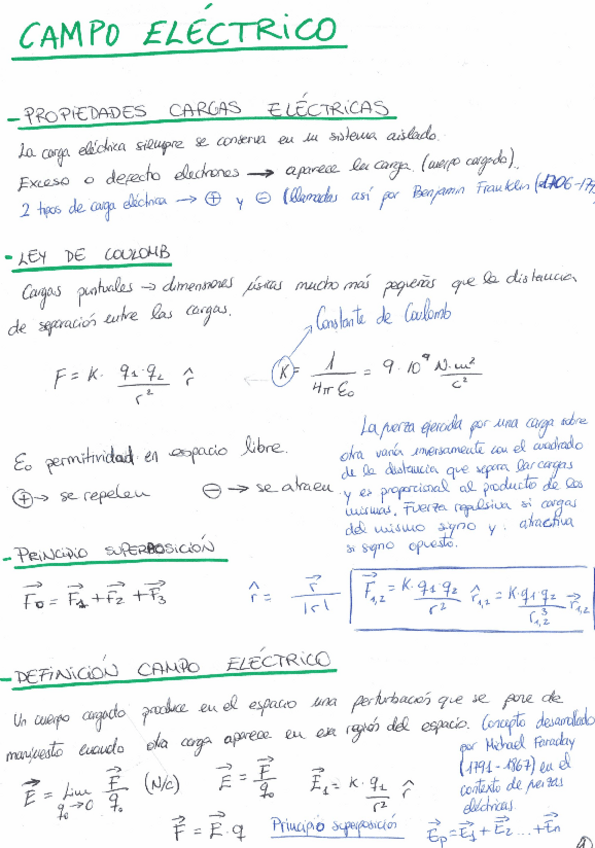 CAMPO ELÉCTRICO
- PROPIEDADES CARGAS ELÉCTRICAS
La carga eléctrica siempre se conserva en un sistema aislado.
Exceso o defecto electrones → aparece la carga. (cuerpo cargado).
2 tipos de carga eléctrica → ⊕ y ⊖ (llamadas así por Benjamin Franklin (1706-179
- LEY DE COULOMB
Cargas puntuales → dimensiones físicas mucho más pequeñas que la distancia
de separación entre las cargas.
Constante de Coulomb
F = K · q1·q2 / r² r̂
K = 1 / 4π ε0 = 9·10⁹ N·m² / C²
ε0 permitividad en espacio libre.
⊕ → se repelen ⊖ → se atraen
La fuerza ejercida por una carga sobre
otra varía inversamente con el cuadrado
de la distancia que separa las cargas
y es proporcional al producto de las
mismas. Fuerza repulsiva si cargas
del mismo signo y atractiva
si signo opuesto.
- PRINCIPIO SUPERPOSICIÓN
F⃗0 = F⃗1 + F⃗2 + F⃗3
r̂ = r⃗ / |r|
F⃗1,2 = K·q1·q2 / r² r̂1,2 = K·q1·q2 / r³1,2 r⃗1,2
- DEFINICIÓN CAMPO ELÉCTRICO
Un cuerpo cargado produce en el espacio una perturbación que se pone de
manifiesto cuando otra carga aparece en esa región del espacio.
Concepto desarrollado
por Michael Faraday
(1791-1867) en el
contexto de fuerzas
eléctricas.
E⃗ = lim q0→0 F⃗ / q0 (N/C)
E⃗ = F⃗ / q0
E⃗1 = K · q1 / r² r̂
F⃗ = E⃗ · q
Principio superposición
E⃗p = E⃗1 + E⃗2 ... + E⃗n
1